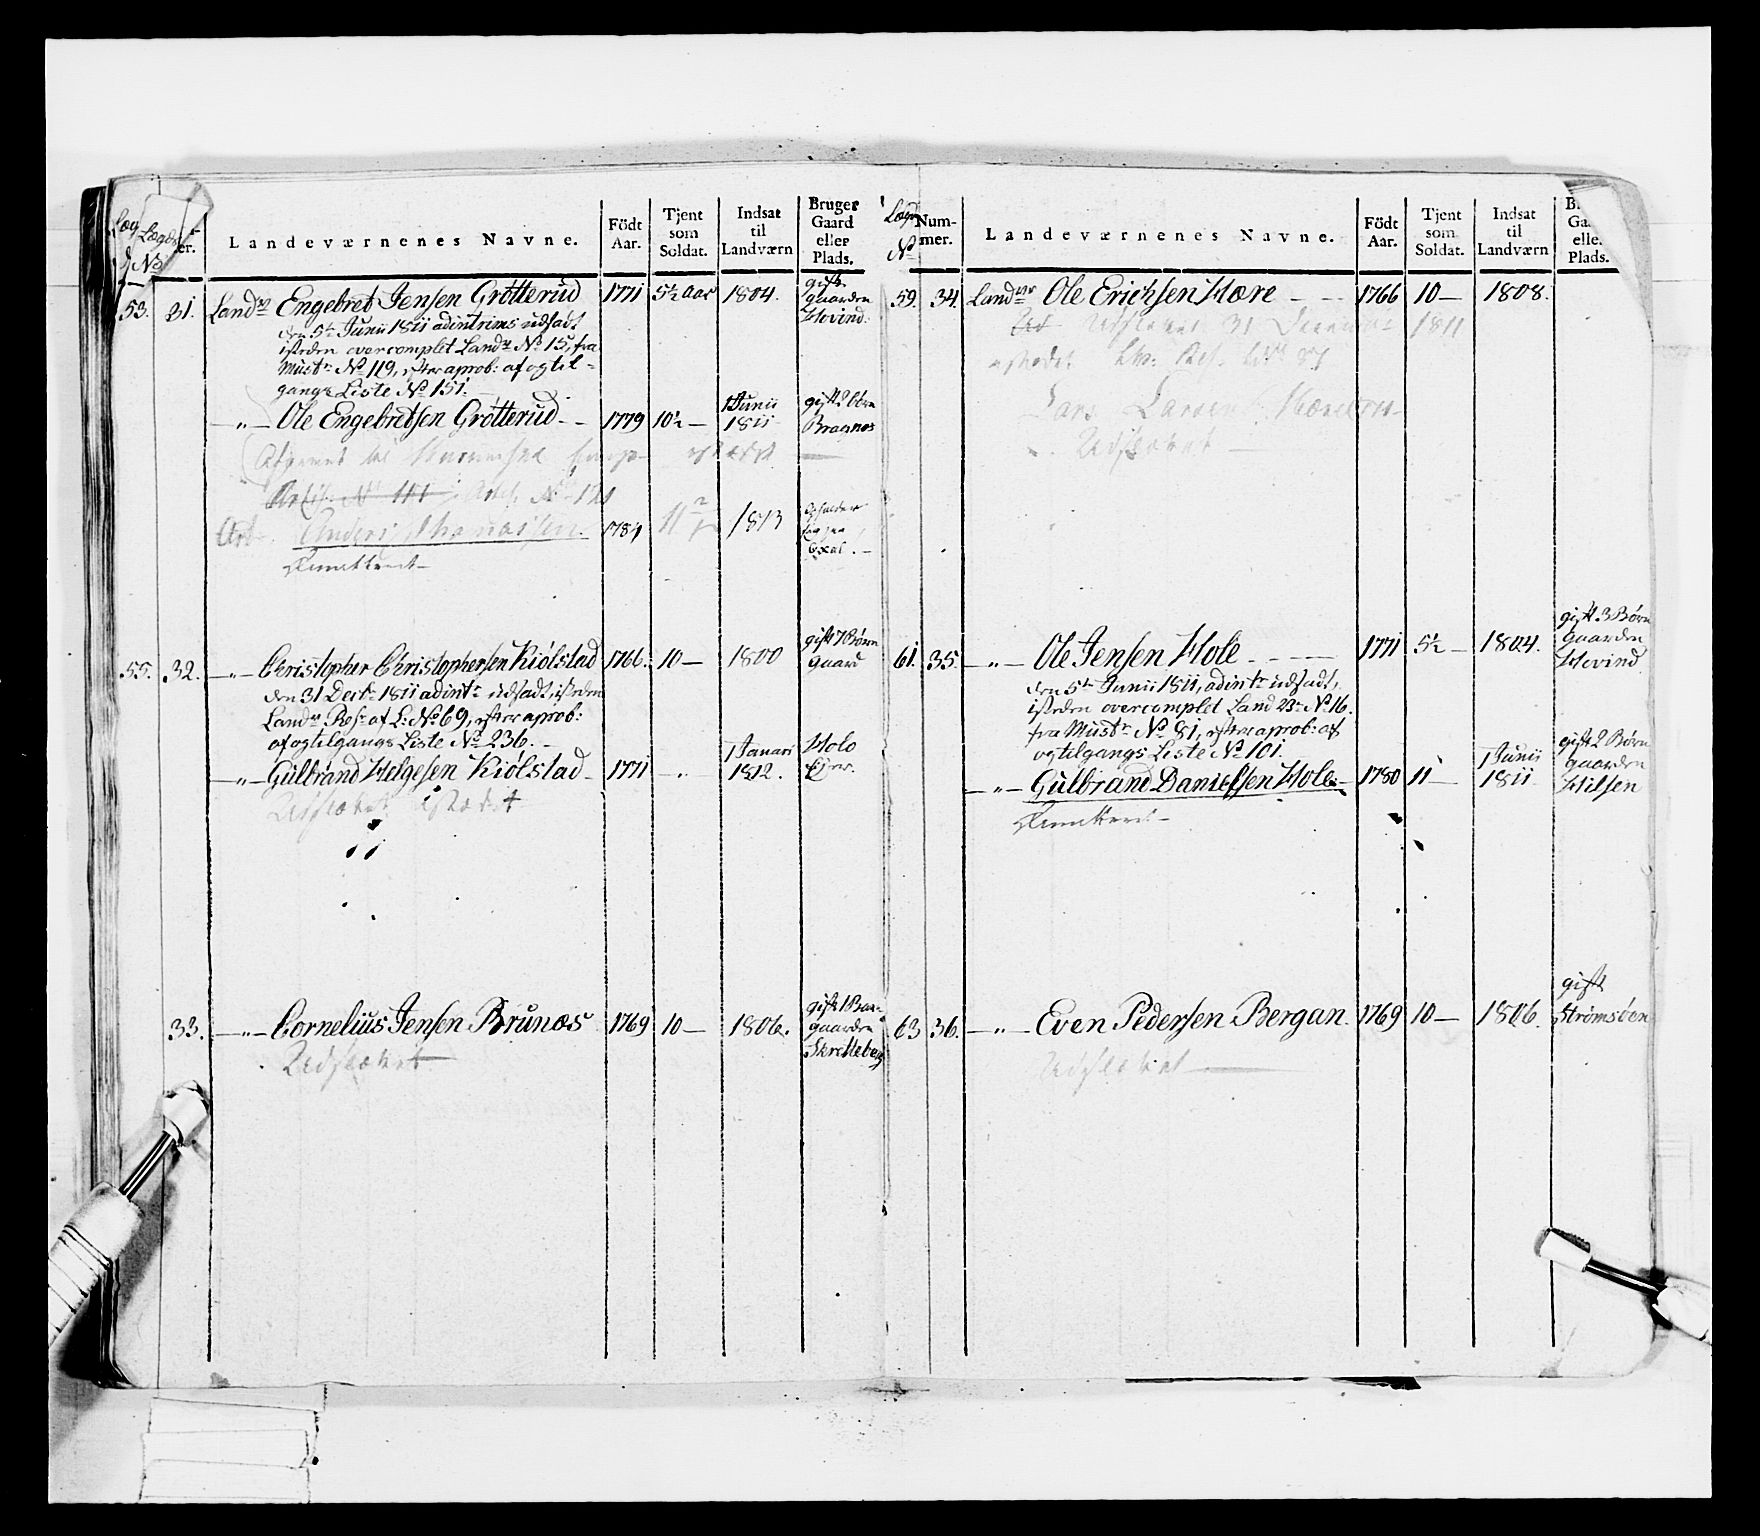 Lægds
No
er.
Landeværnenes Navne.
Födt
Aar.
Tjent
som
Soldat.
Indsat
til
Landværn
Bruger
Gaard
eller
Plads.
53. 31. Landv Engebret Jensen Grótterud 1771 5½ Aar 1804. gift gaarden Hovind.
den 5te Junii 1811 adintrims udsadt
isteden overcomplet Landv No 15, fra
Mustr No 119, efter aprob: af og til-
gangs Liste No 151.
—„— Ole Engebretsen Grótterud - - 1779 10½ — 1 Junii 1811 gift 2 børn Bragnæs
No 111
1813
55. 32. —„— Christopher Christophersen Kiólstad 1766. 10 — 1800 gift 7 Børn gaard
den 31 Decbr 1811 adintr udsadt, isteden
Landv Resr af L: No 69, efter aprob:
af og tilgangs Liste No 236.
—„— Gulbrand Helgesen Kiólstad - 1771 — 1 Januari 1812. Holo Ejer.
Udslættet
33. —„— Cornelius Jensen Brunæs 1769 10 — 1806. gift 1 Barn gaarden Skrelleberg
Udslættet
Lægds
No
Num-
mer.
Landeværnenes Navne.
Födt
Aar.
Tjent
som
Soldat.
Indsat
til
Landværn
Gaa
elle.
Plads.
59. 34. Landvr Ole Erichsen Hære - - - 1766 10 — 1808.
Udslættet 31 December 1811
Lars Larsen
Udslættet —
61. 35. —„— Ole Jensen Hole - - - - 1771 5½ — 1804. gift 3 Børn Gaarden Hovind
den 5te Junii 1811, adintr udsadt,
isteden overcomplet Land No 16.
fra Mustr No 81, efter aprob: af
og tilgangs Liste No 101.
—„— Gulbrand Danielsen Hole - 1780 11 — 1 Junii 1811 gift 2 Børn gaarden Hilsen
63 36. —„— Even Pedersen Bergan. 1769 10 — 1806. gift Strømsöen
Udslættet —